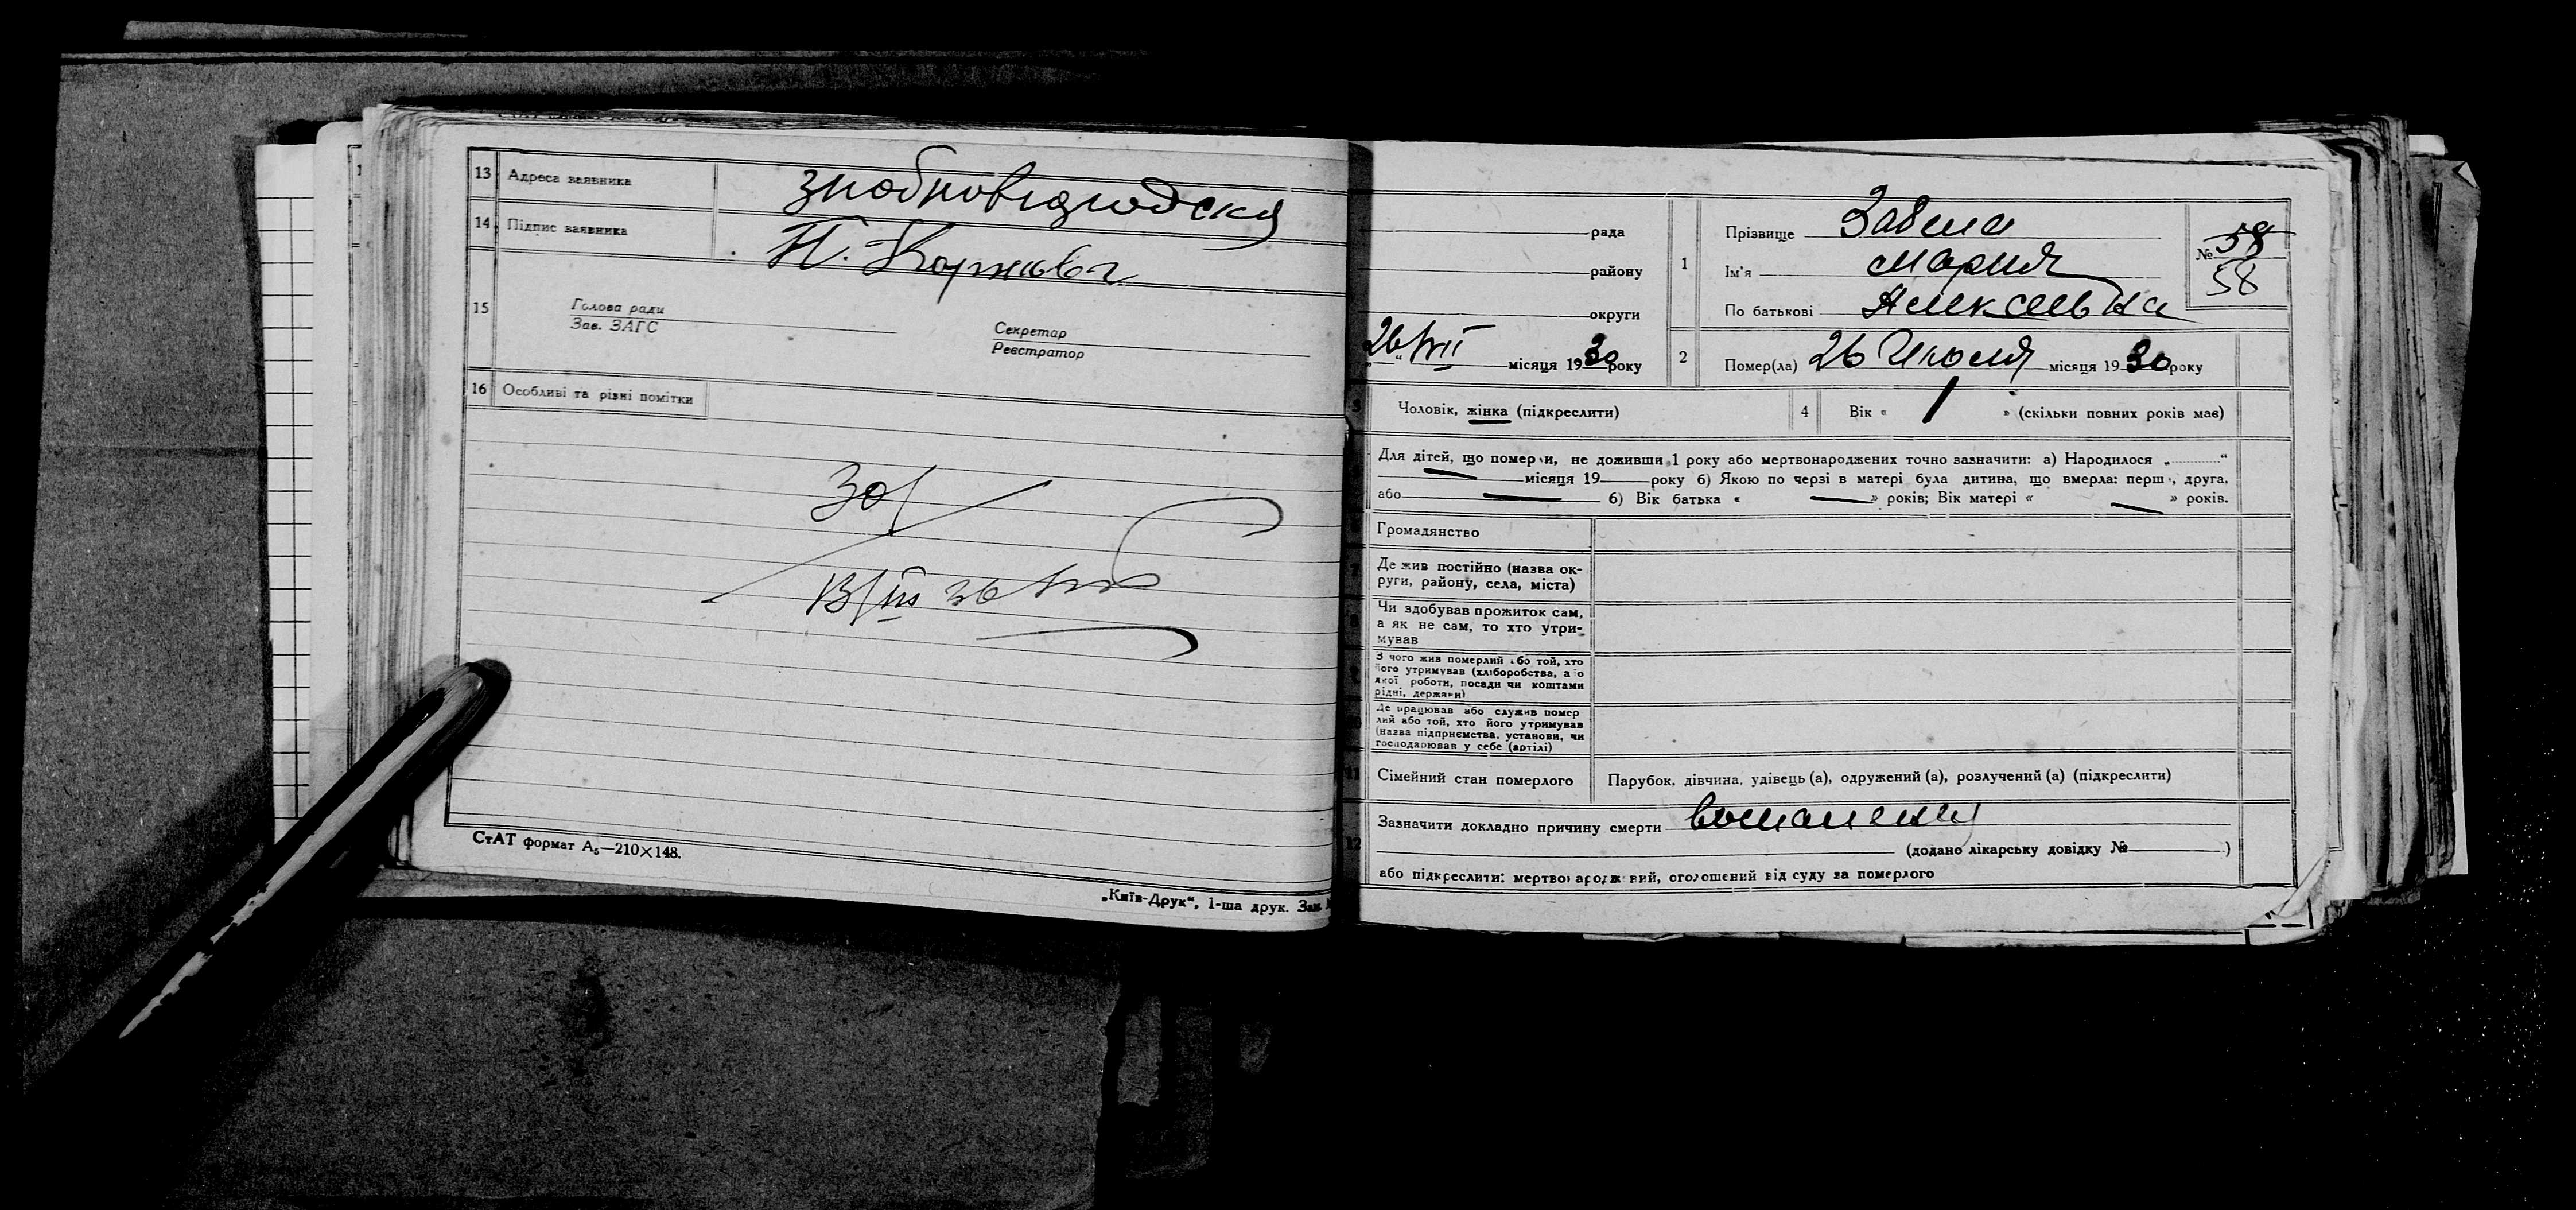 13 Адреса заявника знобновгродская
14 Підпис заявника П. Коржова
15 Голова ради
Зав. ЗАГС
Секретар
Реєстратор
16 Особливі та різні помітки
СтАТ формат А₅—210×148.
„Київ-Друк“, 1-ша друк. Зам.
рада
району
округи
26 VII місяця 1930 року
1 Прізвище Забела
Ім'я Мария
По батькові Алексеевна
№ 58
58
2 Помер(ла) 26 Июля місяця 1930 року
Чоловік, жінка (підкреслити)
4 Вік « 1 » (скільки повних років має)
Для дітей, що померли, не доживши 1 року або мертвонароджених точно зазначити: а) Народилося „ “
місяця 19 року б) Якою по черзі в матері була дитина, що вмерла: перша, друга,
або б) Вік батька « » років; Вік матері « » років.
Громадянство
Де жив постійно (назва ок-
руги, району, села, міста)
Чи здобував прожиток сам,
а як не сам, то хто утри-
мував
З чого жив померлий або той, хто
його утримував (хліборобства, або
якої роботи, посади чи коштами
рідні, держави)
Де працював або служив помер
лий або той, хто його утримував
(назва підприємства, установи, чи
господарював у себе (артілі)
11 Сімейний стан померлого Парубок, дівчина, удівець (а), одружений (а), розлучений (а) (підкреслити)
12 Зазначити докладно причину смерти
(додано лікарську довідку № )
або підкреслити: мертвонароджений, оголошений від суду за померлого